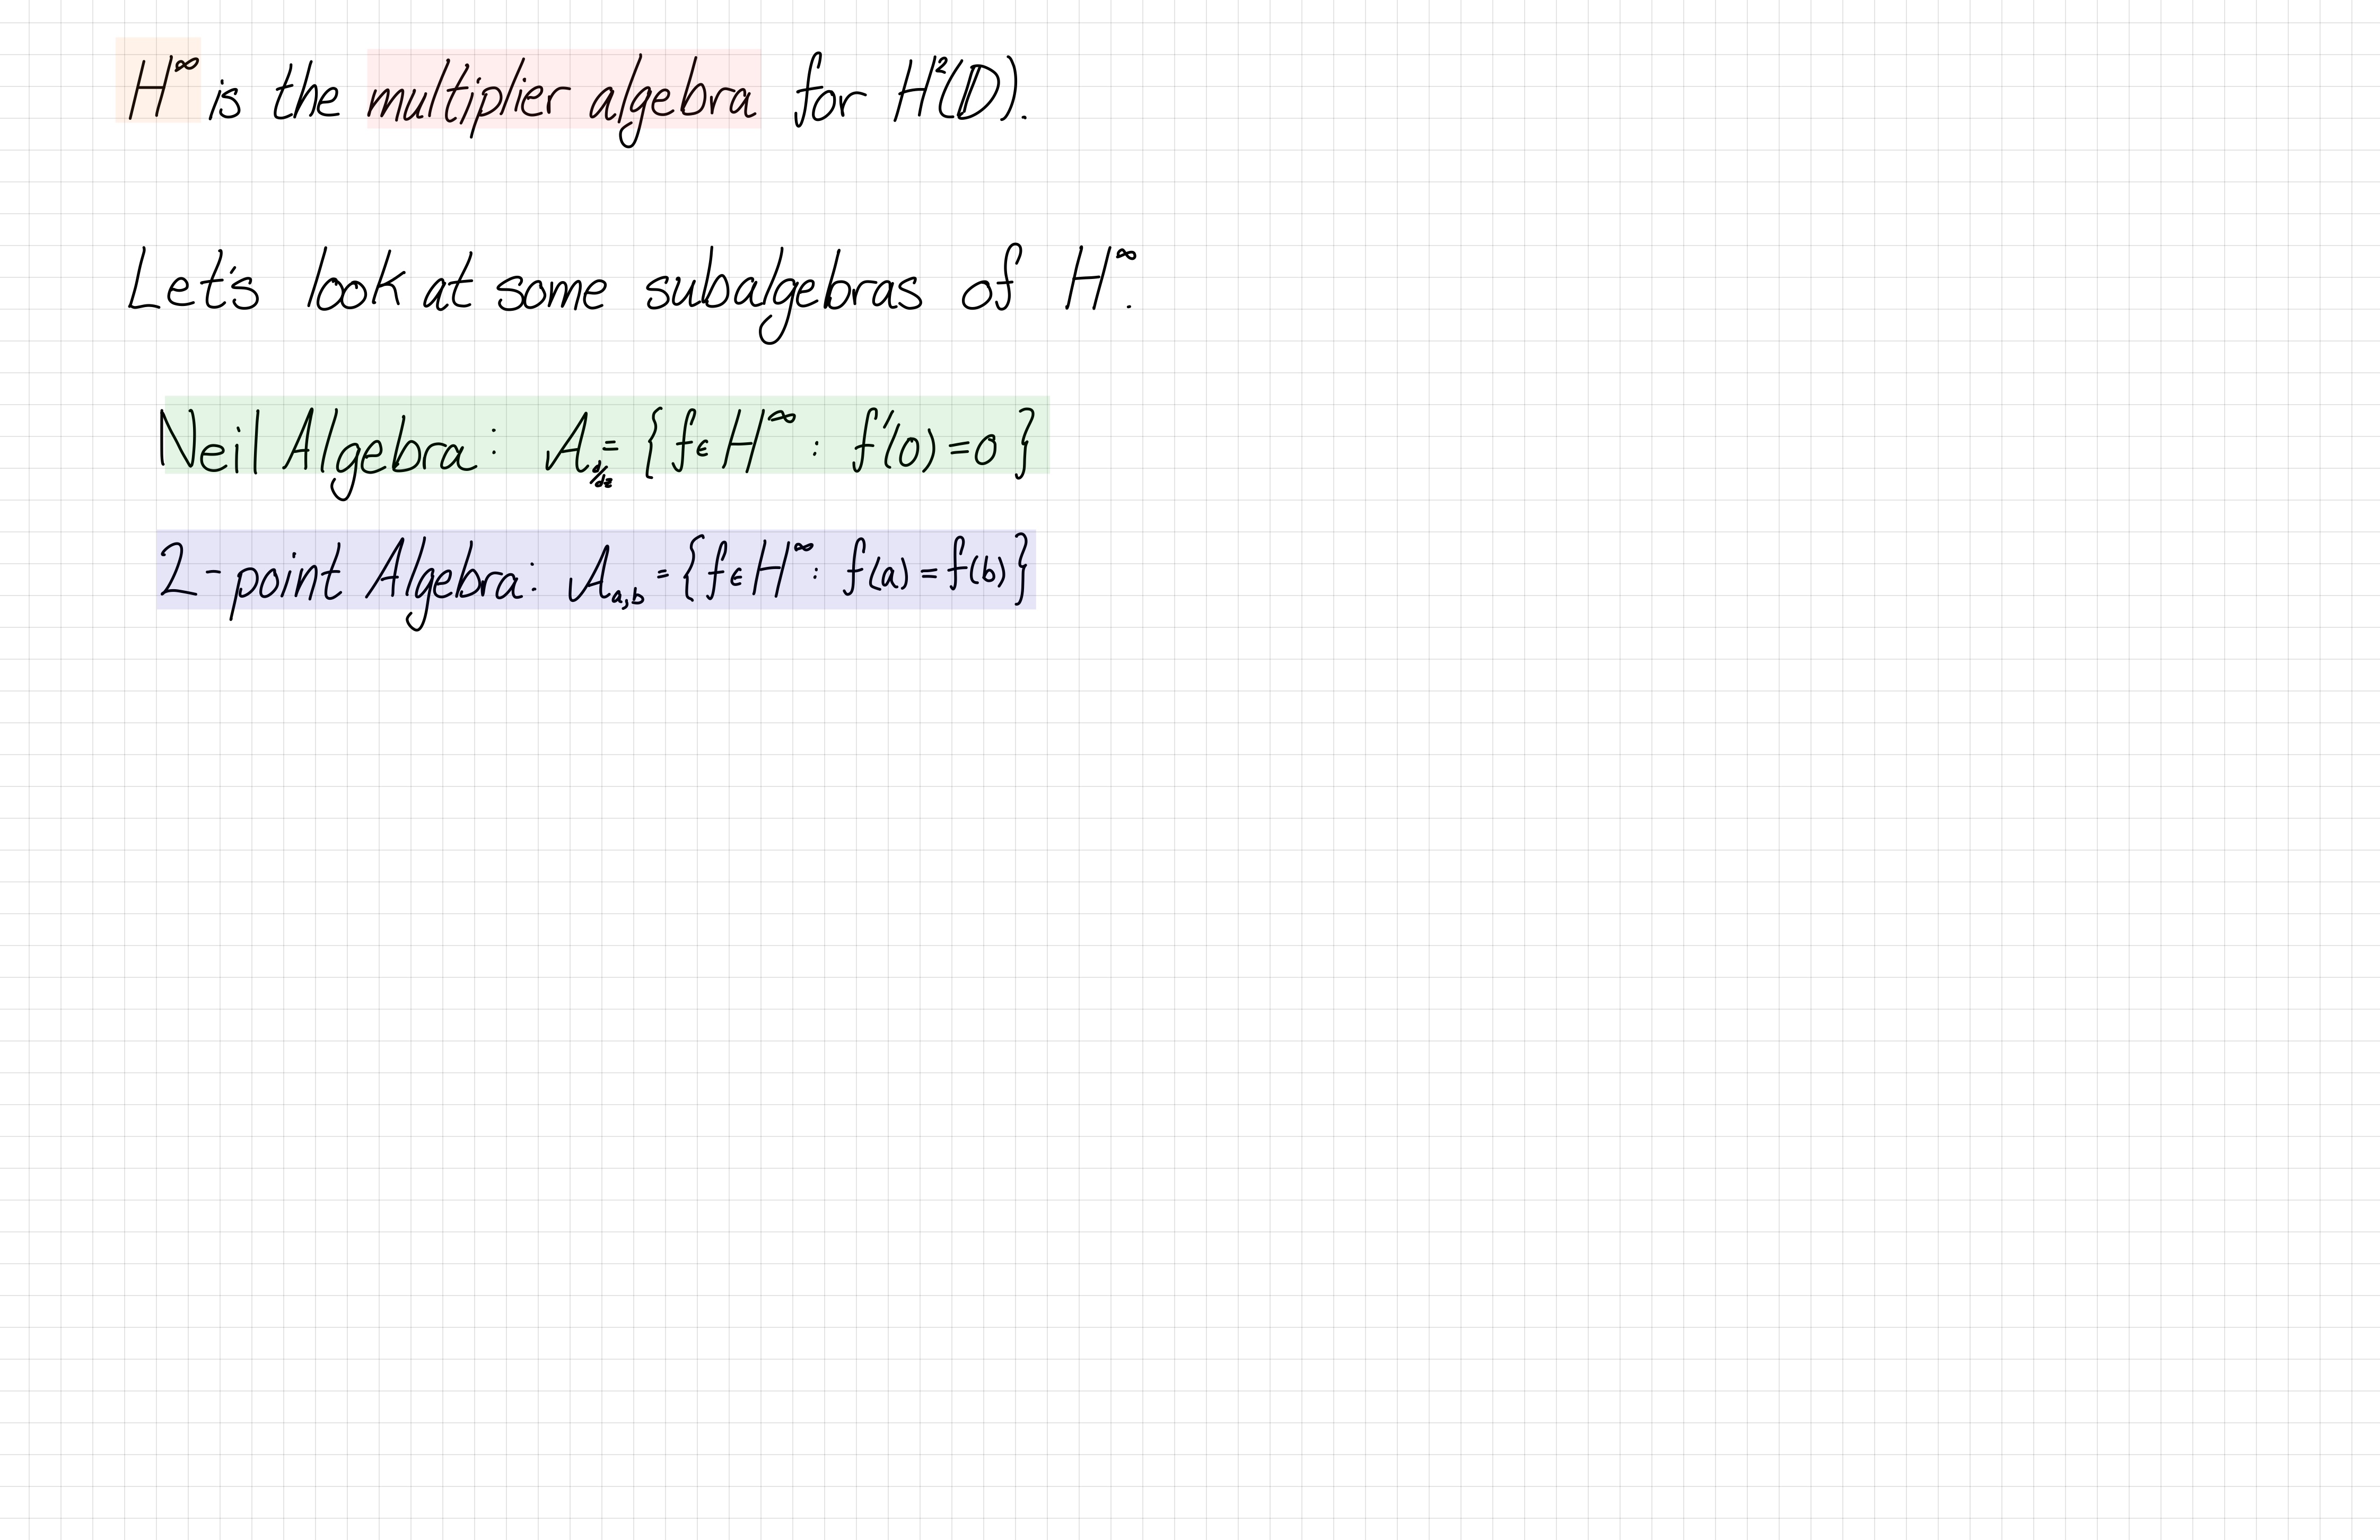 H^∞ is the multiplier algebra for H²(𝔻).
Let's look at some subalgebras of H^∞.
Neil Algebra: A_{d/dz} = {f ∈ H^∞ : f'(0) = 0}
2-point Algebra: A_{a,b} = {f ∈ H^∞ : f(a) = f(b)}